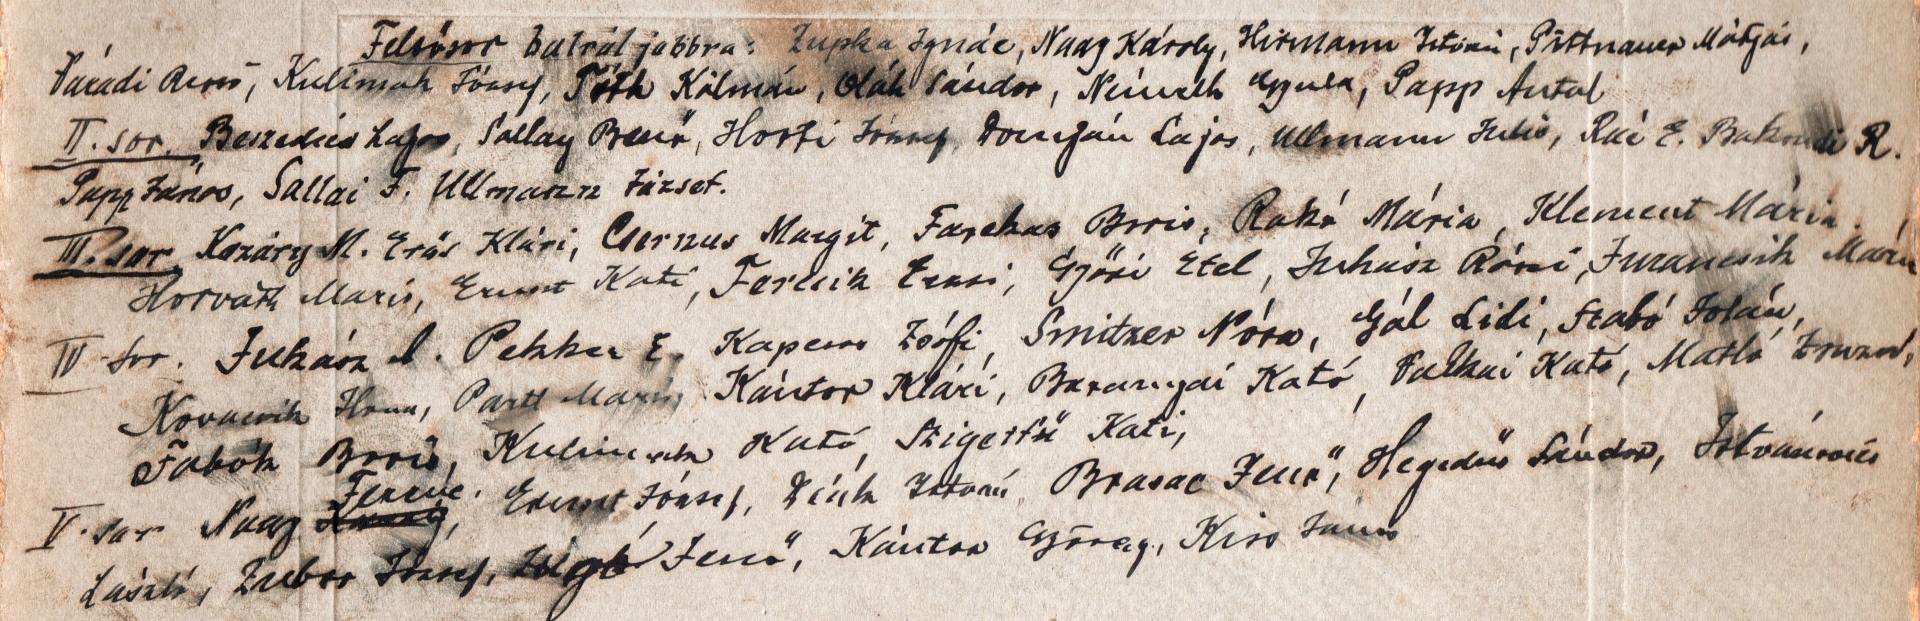 Felsősor balról jobbra: Zupka Ignác, Nagy Károly, Hirmann István, Pittnauer Mátyás,
Váradi, Kulimák József, Tóth Kálmán, Oláh Sándor, Németh Gyula, Papp Antal
II. sor. Beszedics Lajos, Sallay Benő, Horti József, Domján Lajos, Ullmann Julis, E. Bakondi R.
Papp János, Sallai F. Ullmann József.
III. sor Kozáry M. Erős Klári, Csernus Margit, Farkas Boris, Rakó Mária, Klement Mária
Horváth Maris, Ernst Kati, Ferlik Erzsi, Győri Etel, Juhász Rózsi, Maris
IV sor. Juhász Pekker E. Zsófi, Smitzer Nóra, Gál Lidi, Szabó Jolán,
Kovacsik Ilona, Partl Maris, Kántor Klári, Baranyai Kató, Valkai Kató, Matló
Jabók Boris, Kulimák Kató, Szigetfű Kati,
V. sor Nagy Ferenc, Ernst József, Deák István Brasac Jenő, Hegedűs Sándor, Istvánovics
László, Zubor József, Zsigó Jenő, Kántor György, Kiss János